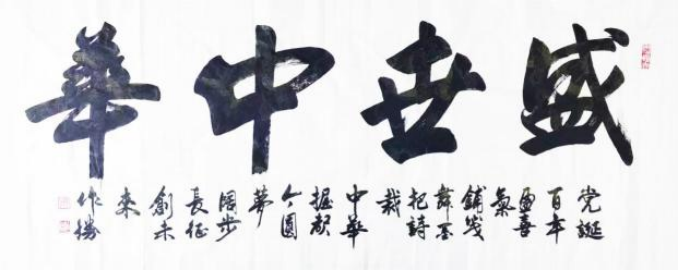 盛世中華
党誕
百年
喜
氣
鋪箋
舞墨
把詩
裁
中華
今圓
夢
闊步
長征
創未
來
作勝